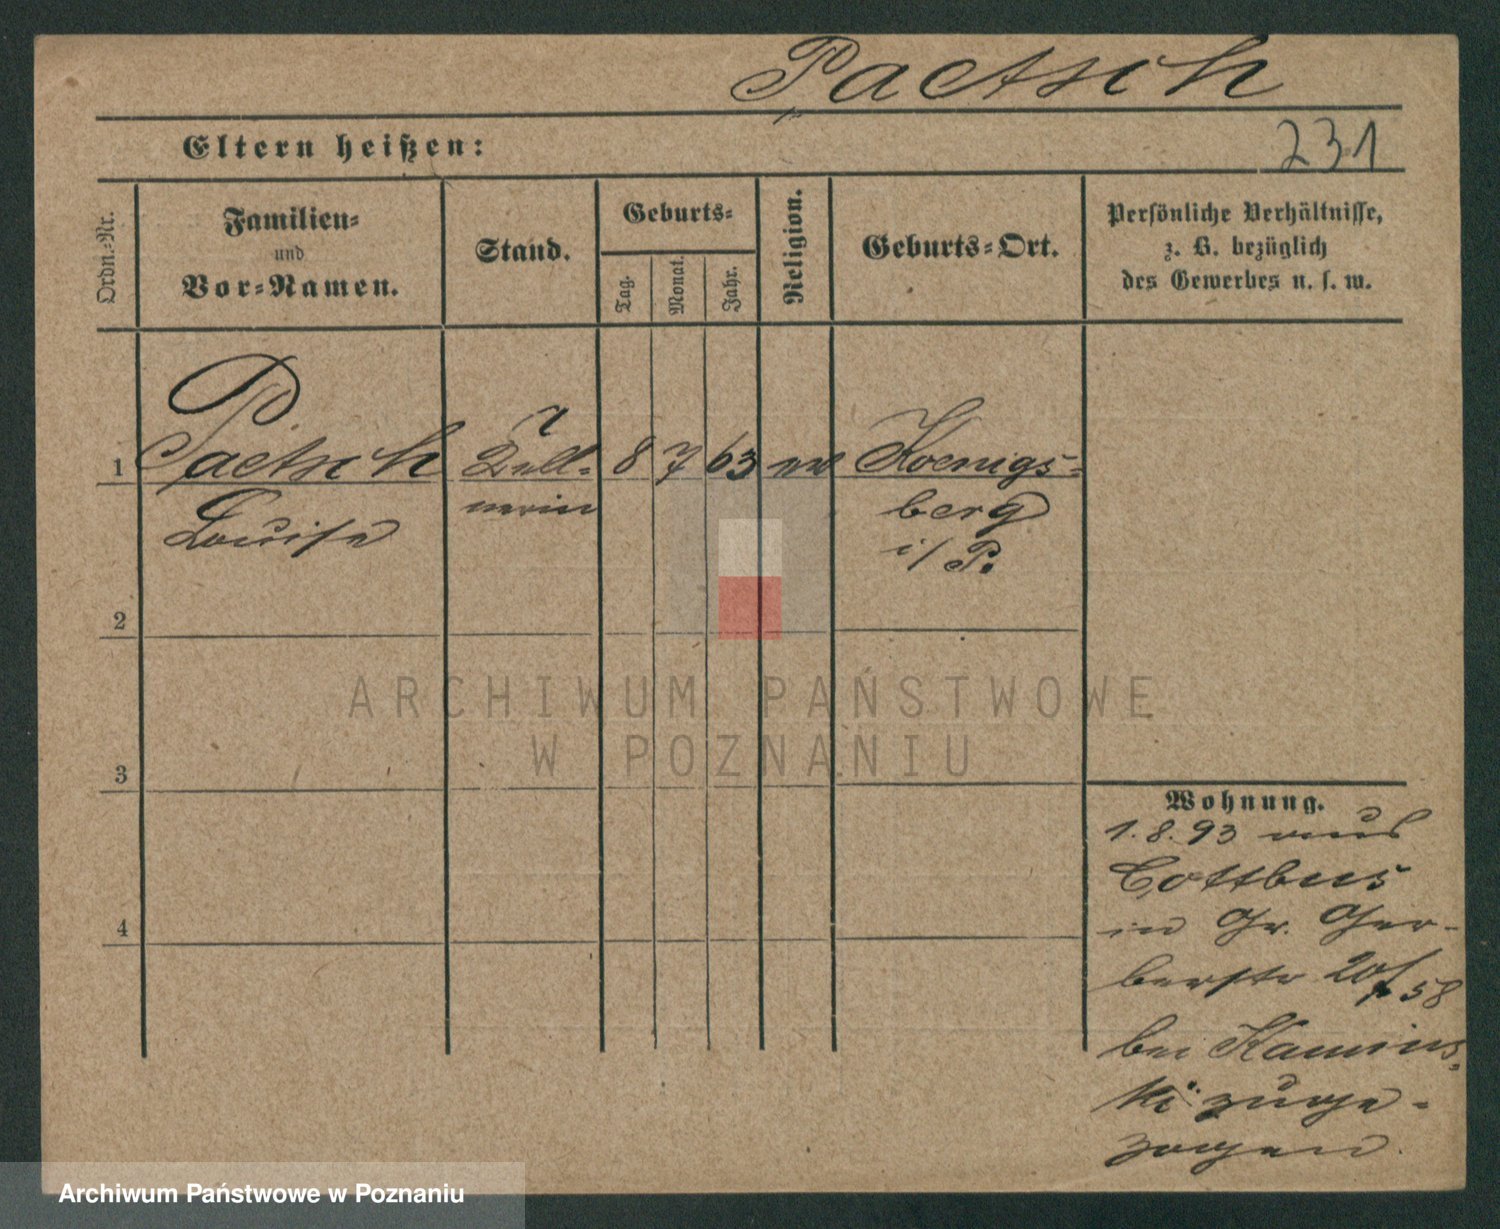 Paetsch
Eltern heißen:
231
Ordn.-Nr.
Familien-
und
Vor-Namen.
Stand.
Geburts-
Tag.
Monat.
Jahr.
Religion.
Geburts-Ort.
Persönliche Verhältnisse,
z. B. bezüglich
des Gewerbes u. s. w.
1
Paetsch
Kell-
8
7
63
ev
Koenigs-
Louise
nerin
berg
i/P.
2
ARCHIWUM PAŃSTWOWE
W POZNANIU
3
4
Wohnung.
1.8.93 aus
Cottbus
in Gr. Ger-
berstr 20/58
bei Kamins-
ki zuge-
zogen.
Archiwum Państwowe w Poznaniu